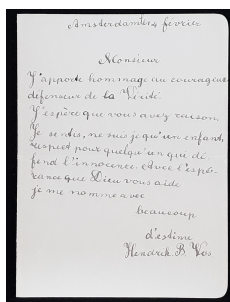 Amsterdam 14 fevrier
Monsieur
J'apporte hommage au courageux
défenseur de la Vérité.
J'espère que vous avez raison.
Je sens, ne suis je qu'un enfant,
respect pour quelqu'un que dé
fend l'innocence. Avec l'espé-
rance que Dieu vous aide
je me nomme avec
beaucoup
d'estime
Hendrik. B. Vos